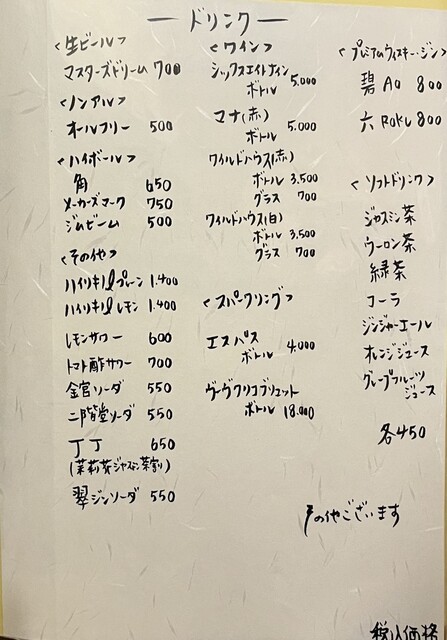 ードリンクー
<生ビール>
マスターズドリーム 700
<ノンアル>
オールフリー 500
<ハイボール>
角 650
メーカーズマーク 750
ジムビーム 500
<その他>
ハイリキ プレーン 1.400
ハイリキ レモン 1.400
レモンサワー 600
トマト酢サワー 700
金宮ソーダ 550
二階堂ソーダ 550
丁丁 650
(茉莉花ジャスミン茶割り)
翠ジンソーダ 550
<ワイン>
シックスエイトナイン
ボトル 5.000
マナ(赤)
ボトル 5.000
ワイルドハウス(赤)
ボトル 3.500
グラス 700
ワイルドハウス(白)
ボトル 3.500
グラス 700
<スパークリング>
エスパス
ボトル 4.000
ヴーヴクリコブリュット
ボトル 18.000
<プレミアムウィスキー・ジン>
碧 Ao 800
六 ROKU 800
<ソフトドリンク>
ジャスミン茶
ウーロン茶
緑茶
コーラ
ジンジャーエール
オレンジジュース
グレープフルーツ
ジュース
各450
その他ございます
税込価格